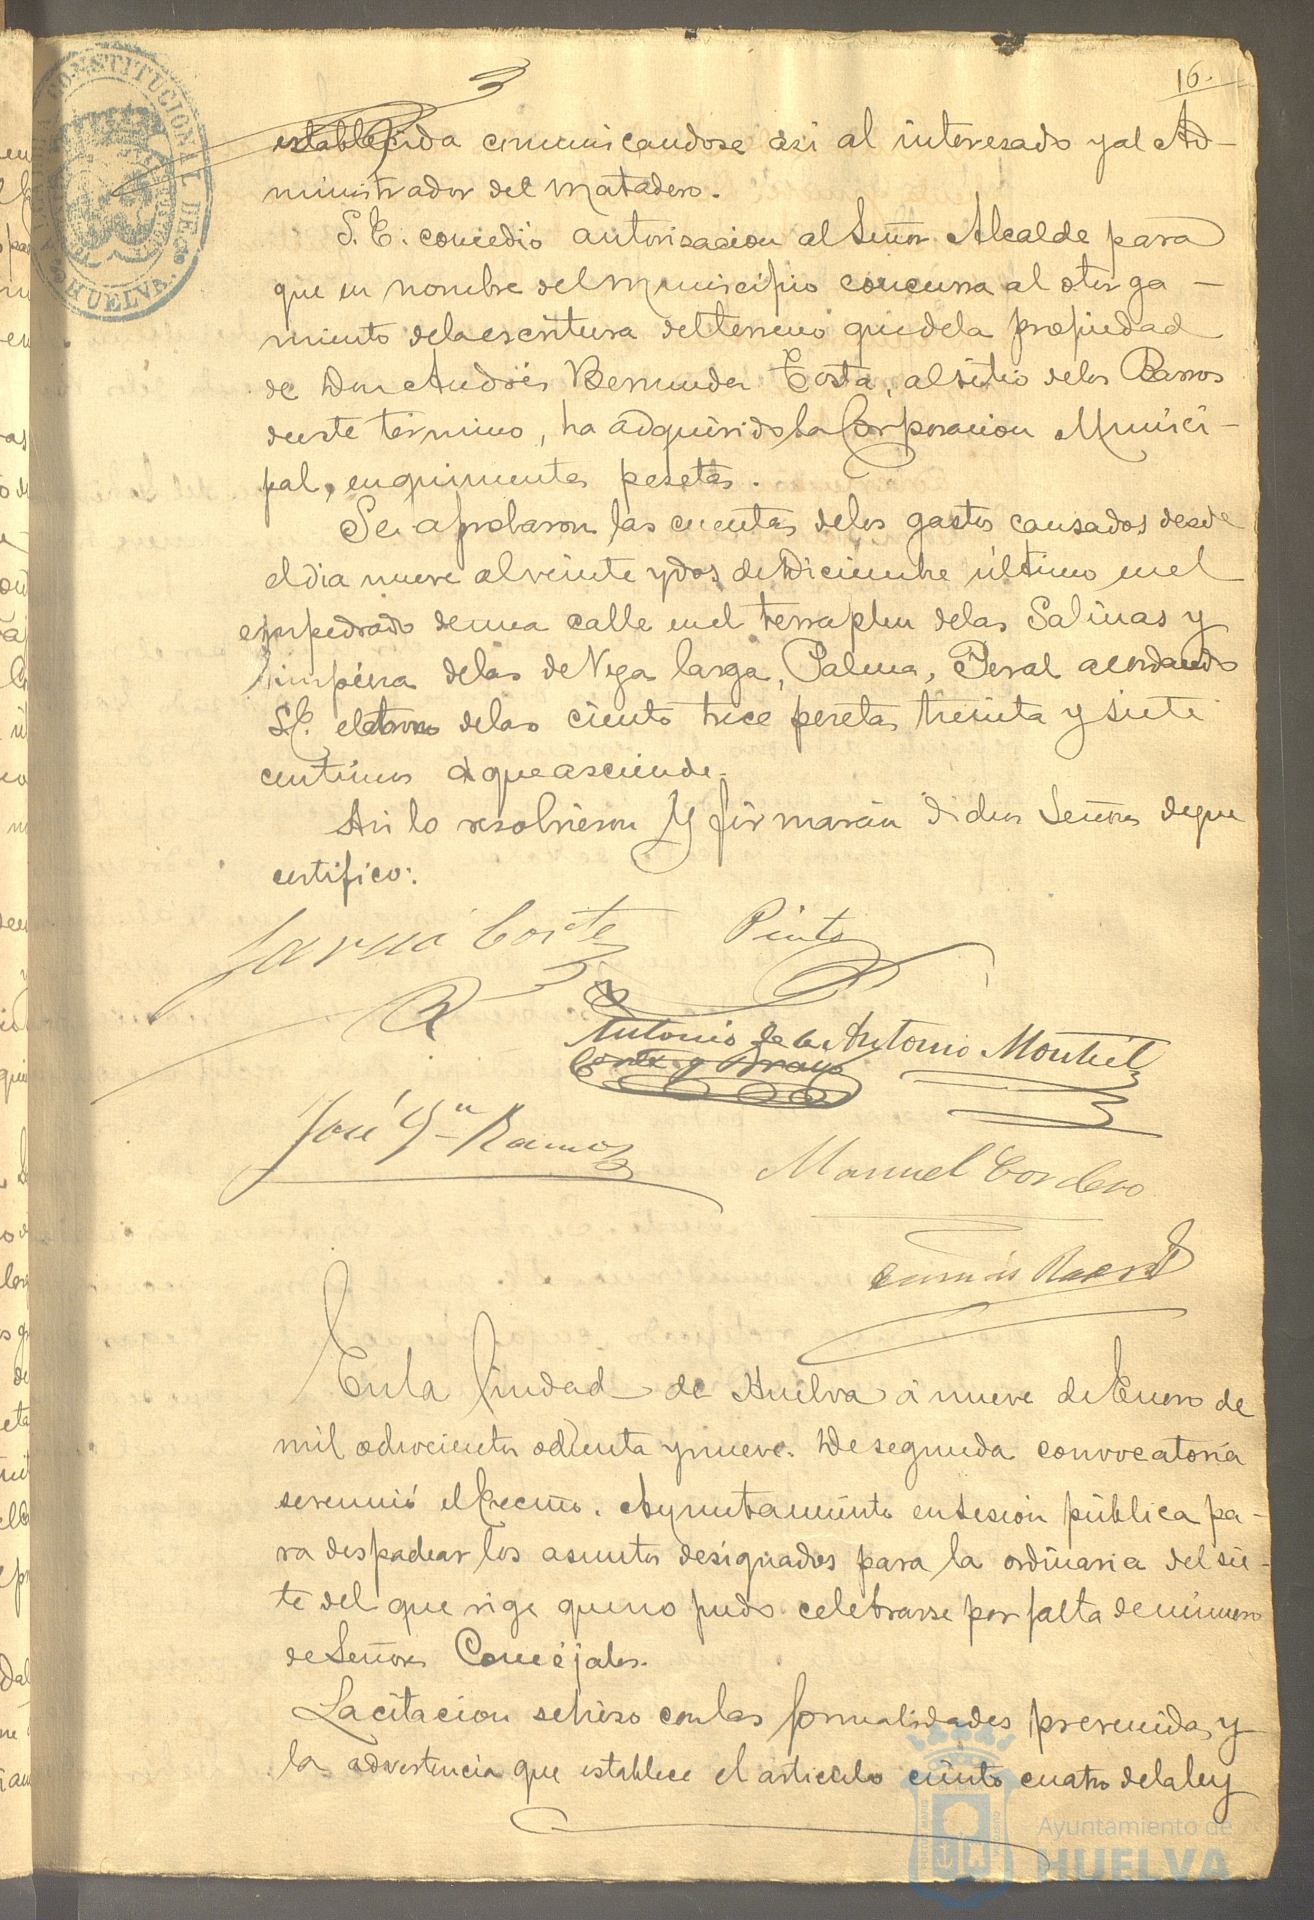 16.
establecida comunicandose asi al interesado y al Ad-
ministrador del Matadero.
S. E. concedio autorisacion al Señor Alcalde para
que en nombre del Municipio concurra al otorga-
miento de la escritura del terreno que de la propiedad
de Don Andrés Bermudez Costa, al sitio de los Barros
de este término, ha adquirido la Corporacion Munici-
pal, en quinientas pesetas.
Se aprobaron las cuentas de los gastos causados desde
el dia nueve al veinte y dos de Diciembre último en el
empedrado de una calle en el terraplen de las Salinas y
limpieza de las de Vega larga, Palma, Peral acordando
S.E. el abono de las ciento trece pesetas treinta y siete
centimos á que asciende.
Asi lo resolvieron y firmarán dichos Señores de que
certifico:
Garcia Corte Pinto
Antonio de la Antonio Montiel
Cortе y Brayo
José Gn Ramos
Manuel Cordero
En la Ciudad de Huelva á nueve de Enero de
mil ochocientos ochenta y nueve. De segunda convocatoria
se reunió el Excmo. Ayuntamiento en sesion pública pa-
ra despachar los asuntos designados para la ordinaria del sie-
te del que rige que no pudo celebrarse por falta de número
de Señores Concejales.
La citacion se hizo con las formalidades prevenidas y
la advertencia que establece el articulo ciento cuatro de la ley
CONSTITUCIONAL DE HUELVA.
Ayuntamiento de
HUELVA